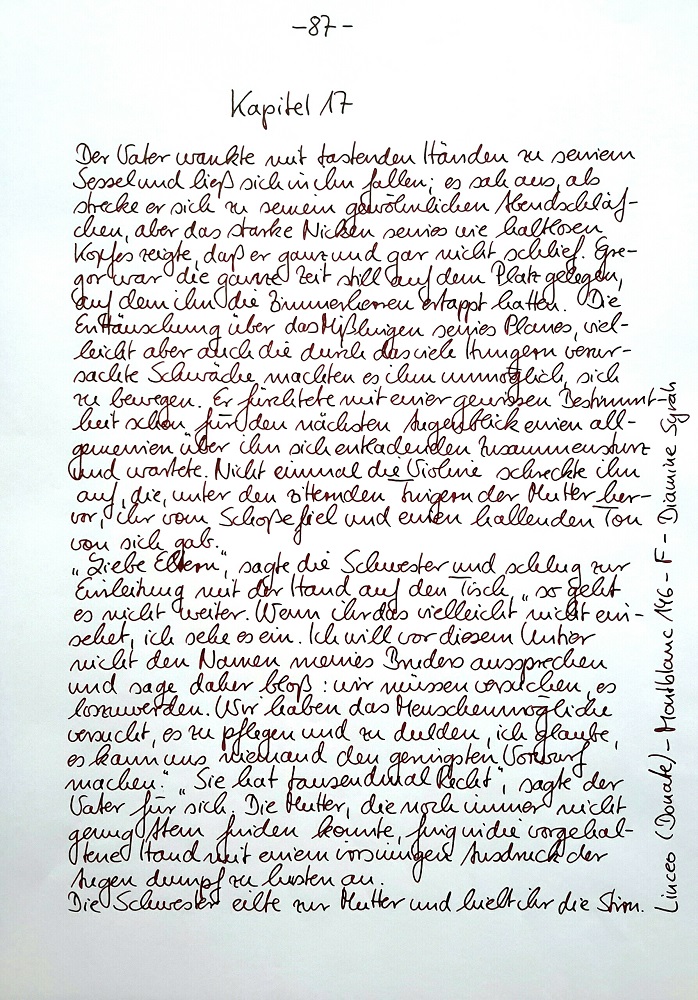 -87-
Kapitel 17
Der Vater wankte mit tastenden Händen zu seinem
Sessel und ließ sich in ihn fallen; es sah aus, als
strecke er sich zu seinem gewöhnlichen Abendschläf-
chen, aber das starke Nicken seines wie haltlosen
Kopfes zeigte, daß er ganz und gar nicht schlief. Gre-
gor war die ganze Zeit still auf dem Platz gelegen,
auf dem ihn die Zimmerherren ertappt hatten. Die
Enttäuschung über das Mißlingen seines Planes, viel-
leicht aber auch die durch das viele Hungern verur-
sachte Schwäche machten es ihm unmöglich, sich
zu bewegen. Er fürchtete mit einer gewissen Bestimmt-
heit schon für den nächsten Augenblick einen all-
gemeinen über ihn sich entladenden Zusammensturz
und wartete. Nicht einmal die Violine schreckte ihn
auf, die, unter den zitternden Fingern der Mutter her-
vor, ihr vom Schoße fiel und einen hallenden Ton
von sich gab.
„Liebe Eltern", sagte die Schwester und schlug zur
Einleitung mit der Hand auf den Tisch, „so geht
es nicht weiter. Wenn ihr das vielleicht nicht ein-
sehet, ich sehe es ein. Ich will vor diesem Untier
nicht den Namen meines Bruders aussprechen
und sage daher bloß: wir müssen versuchen, es
loszuwerden. Wir haben das Menschenmögliche
versucht, es zu pflegen und zu dulden, ich glaube,
es kann uns niemand den geringsten Vorwurf
machen." „Sie hat tausendmal Recht", sagte der
Vater für sich. Die Mutter, die noch immer nicht
genug Atem finden konnte, fing in die vorgehal-
tene Hand mit einem irrsinnigen Ausdruck der
Augen dumpf zu husten an.
Die Schwester eilte zur Mutter und hielt ihr die Stirn.
Linceo (Donate) - Montblanc 146 - F - Diamine Syrah